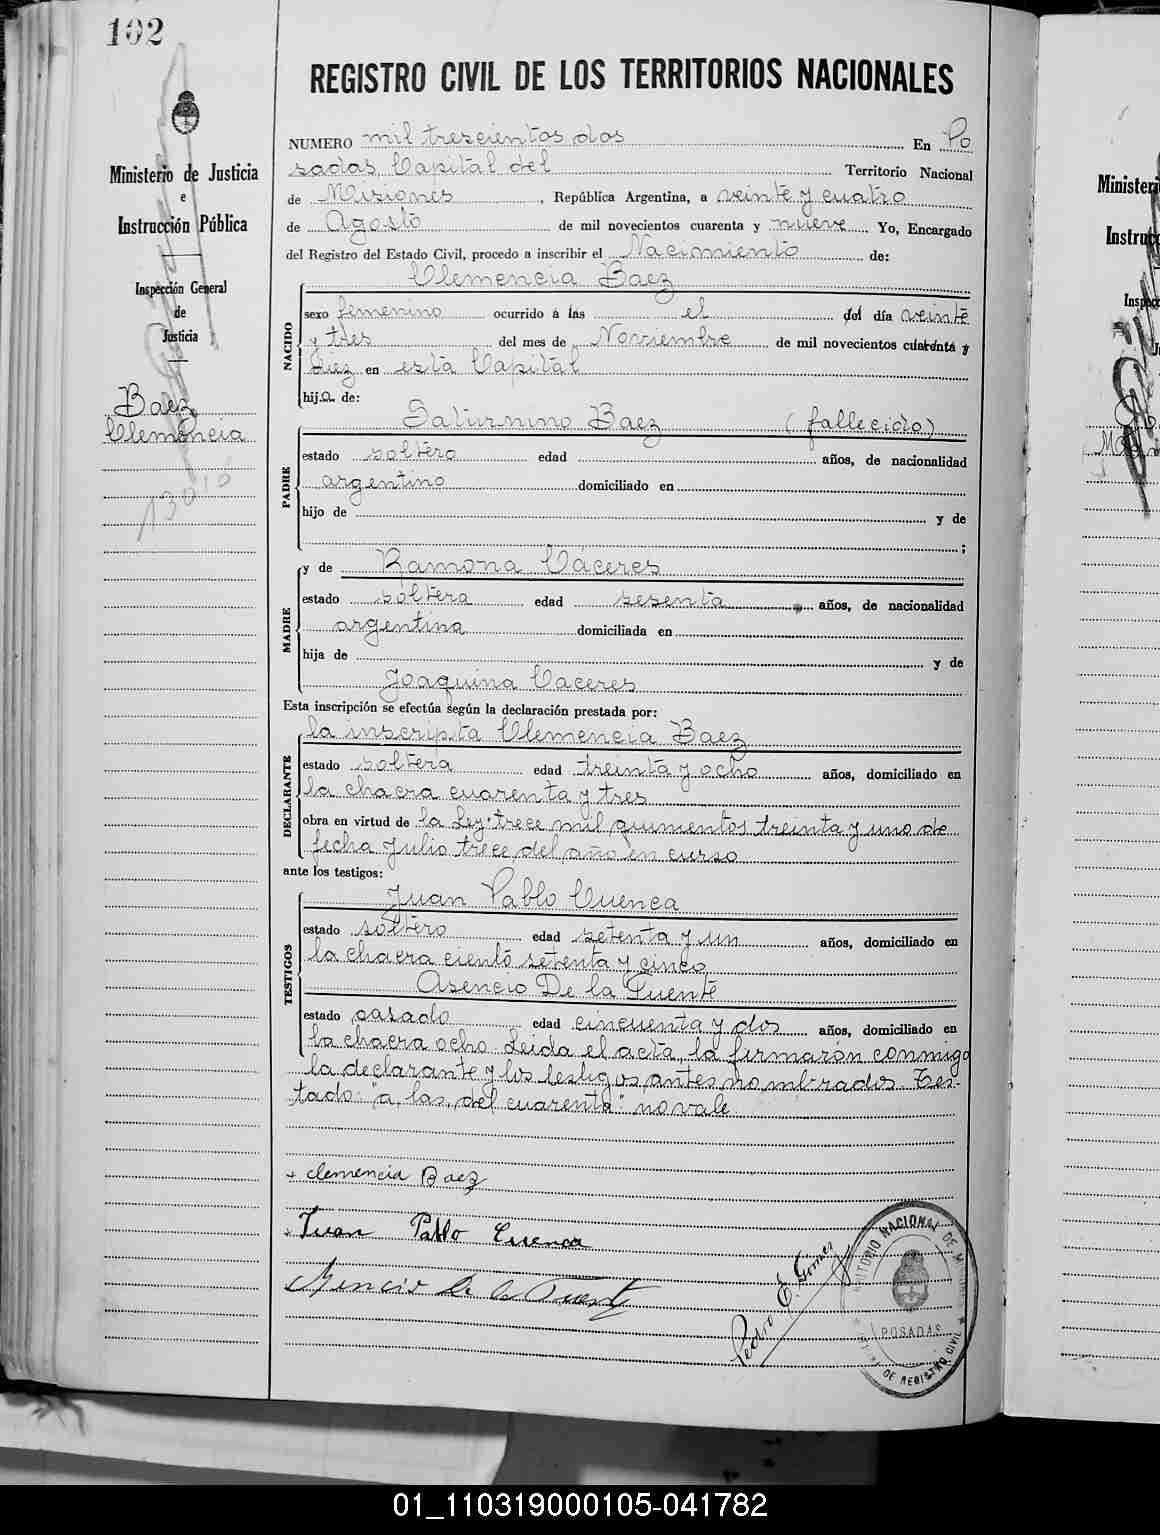 102
REGISTRO CIVIL DE LOS TERRITORIOS NACIONALES
Ministerio de Justicia
e
Instrucción Pública
Inspección General
de
Justicia
Baez
Clemencia
NUMERO mil trescientos dos En Po
sadas, Capital del Territorio Nacional
de Misiones, República Argentina, a veinte y cuatro
de Agosto de mil novecientos cuarenta y nueve Yo, Encargado
del Registro del Estado Civil, procedo a inscribir el Nacimiento de:
NACIDO
Clemencia Baez
sexo femenino ocurrido á las el del día veinte
y tres del mes de Noviembre de mil novecientos cuarenta y
diez en esta Capital
hija de:
PADRE
Saturnino Baez (fallecido)
estado soltero edad años, de nacionalidad
argentino domiciliado en
hijo de y de
;
MADRE
y de Ramona Caceres
estado soltera edad sesenta años, de nacionalidad
argentina domiciliada en
hija de y de
Joaquina Caceres
Esta inscripción se efectúa según la declaración prestada por:
DECLARANTE
la inscripta Clemencia Baez
estado soltera edad treinta y ocho años, domiciliado en
la chacra cuarenta y tres
obra en virtud de la Ley trece mil quinientos treinta y uno de
fecha Julio trece del año en curso
ante los testigos:
TESTIGOS
Juan Pablo Cuenca
estado soltero edad setenta y un años, domiciliado en
la chacra ciento setenta y cinco
Asencio De la Puente
estado casado edad cincuenta y dos años, domiciliado en
la chacra ocho. Leida el acta, la firmaron conmigo
la declarante y los testigos antes nombrados. Tes-
tado: "a, las, del cuarenta" no vale
clemencia Baez
Juan Pablo Cuenca
Asencio De la Puente
Pedro E. Gómez
TERRITORIO NACIONAL DE MISIONES
POSADAS
DE REGISTRO CIVIL
Ministeri
Instruc
Inspec
01_110319000105-041782